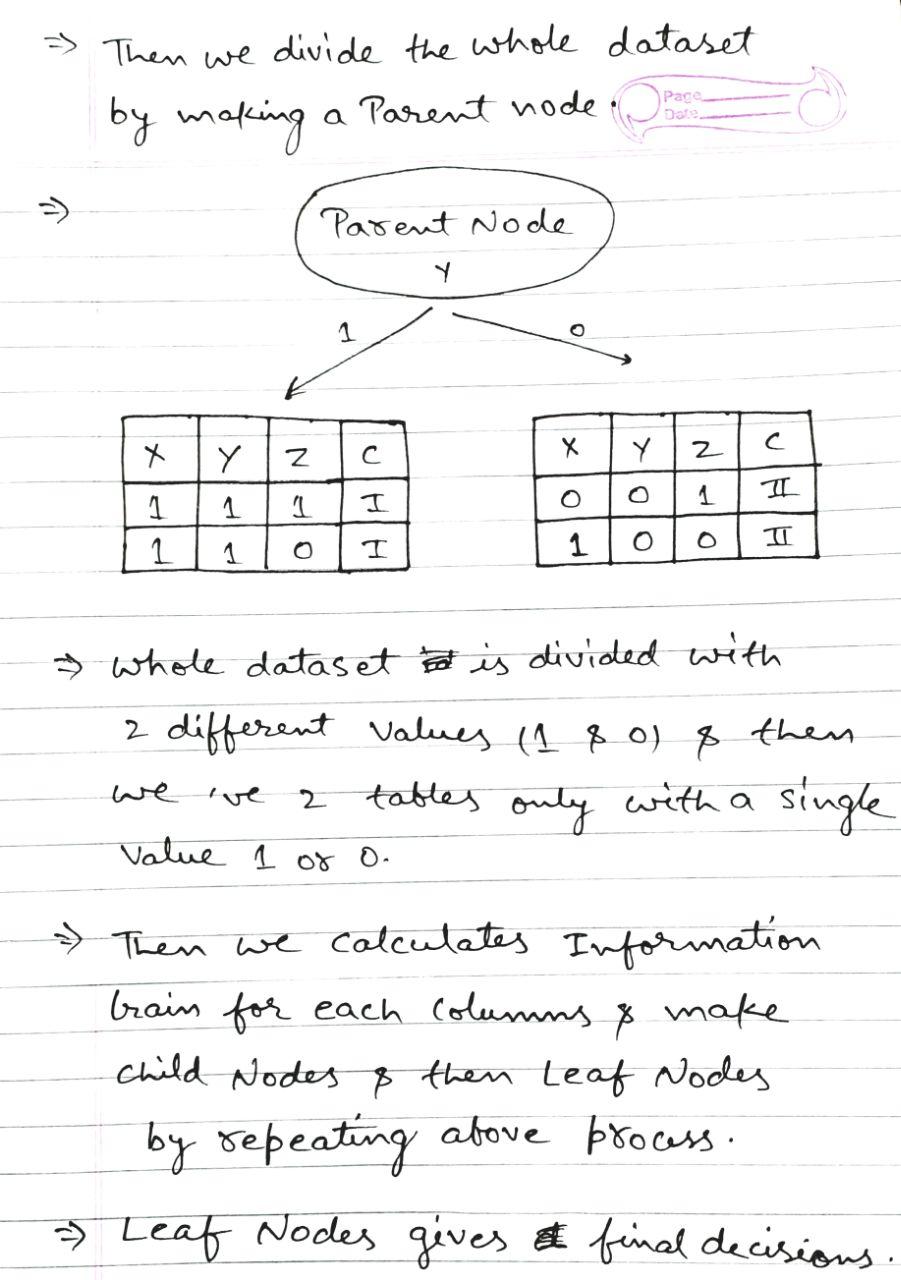 ⇒ Then we divide the whole dataset
by making a Parent node.
Page
Date
⇒
Parent Node
Y
1 0
X Y Z C
1 1 1 I
1 1 0 I
X Y Z C
0 0 1 II
1 0 0 II
⇒ Whole dataset is divided with
2 different values (1 & 0) & then
we 've 2 tables only with a single
Value 1 or 0.
⇒ Then we calculates Information
Gain for each columns & make
child Nodes & then Leaf Nodes
by repeating above process.
⇒ Leaf Nodes gives final decisions.